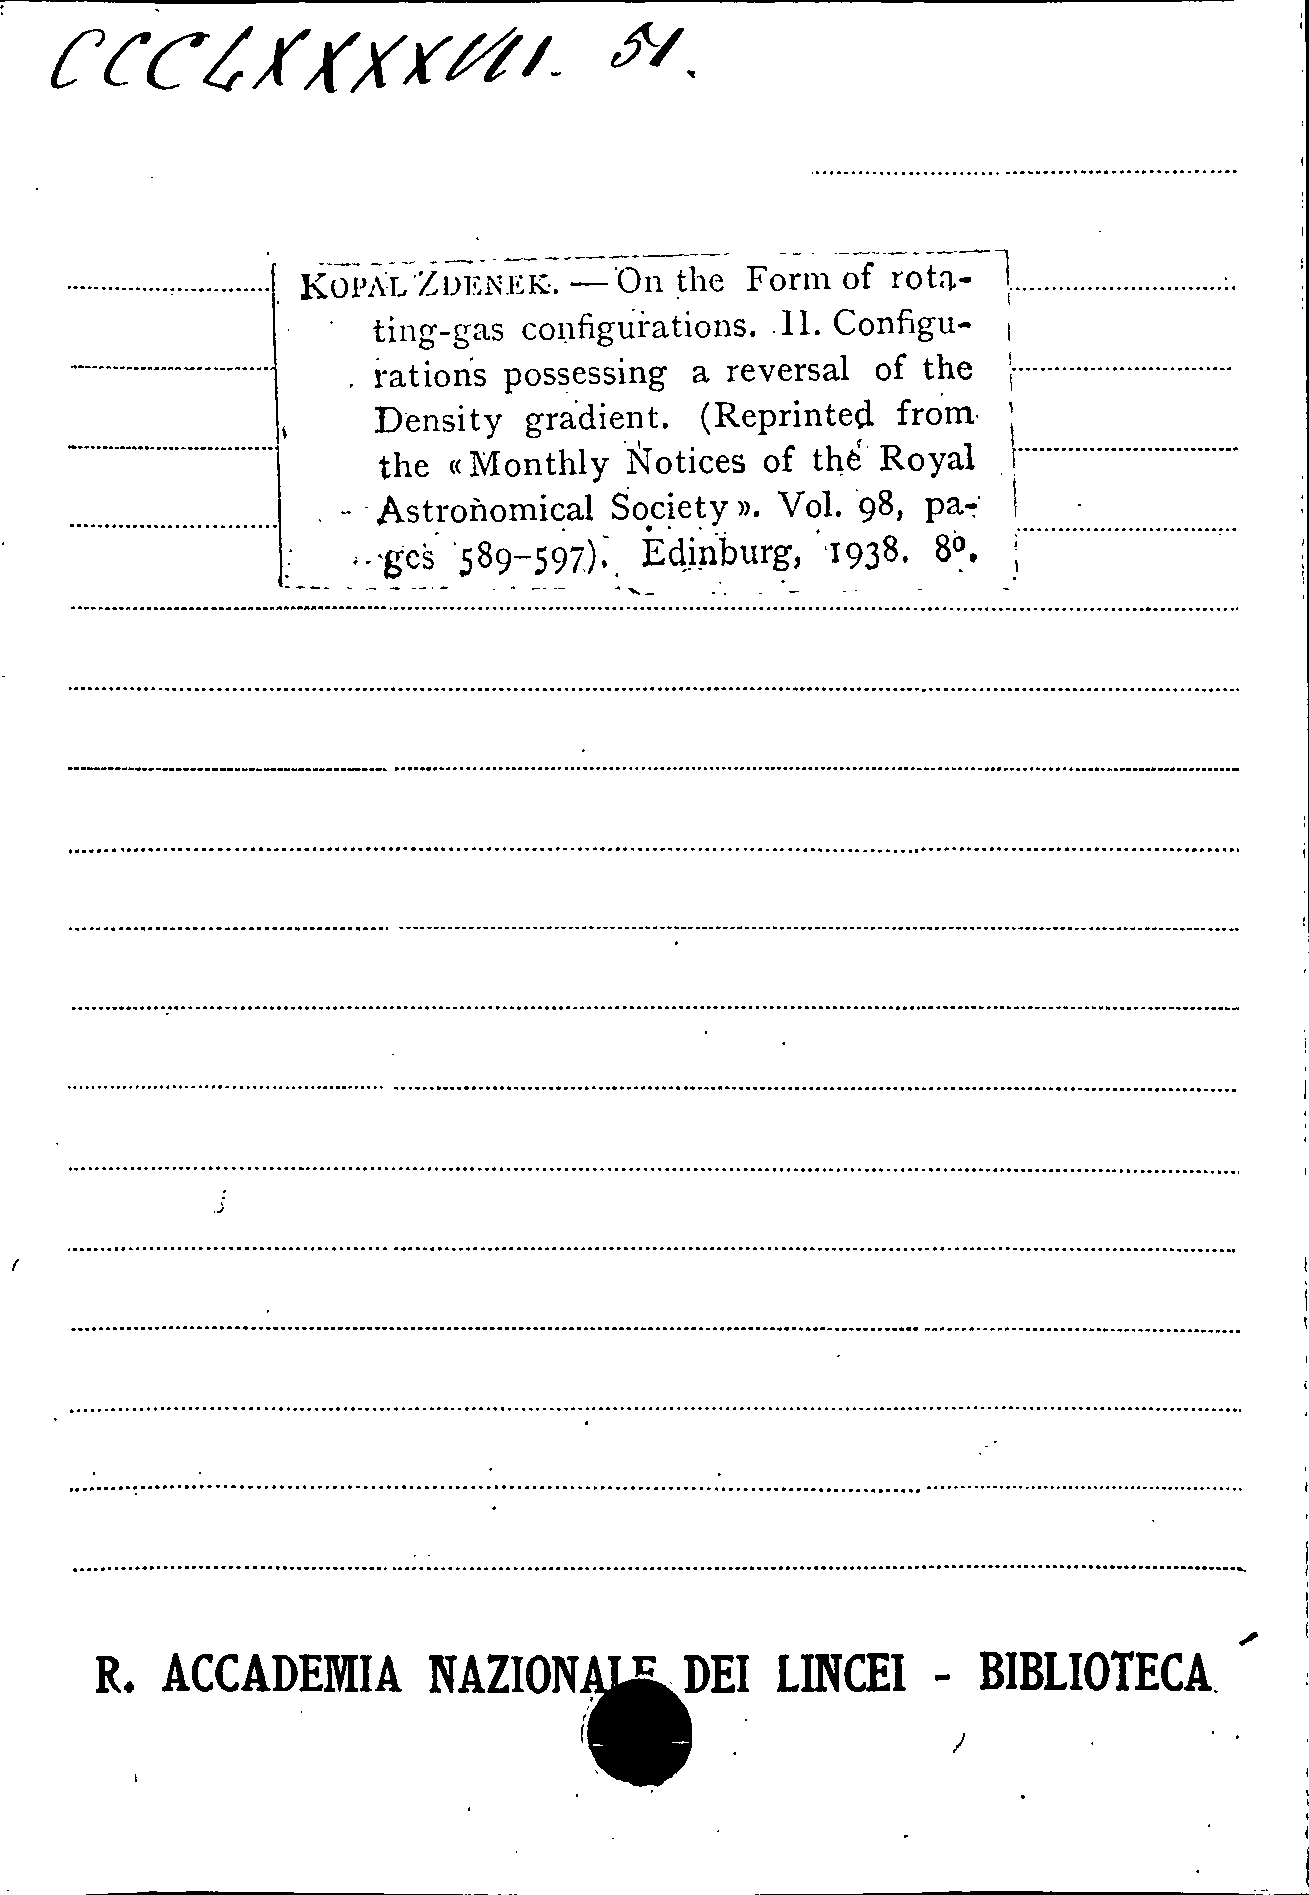 CCCLXXXXVIII. 51.
KOPAL ZDENEK. — On the Form of rota-
ting-gas configurations. II. Configu-
rations possessing a reversal of the
Density gradient. (Reprinted from
the «Monthly Notices of the Royal
Astronomical Society». Vol. 98, pa-
ges 589-597). Edinburg, 1938. 8º.
R. ACCADEMIA NAZIONALE DEI LINCEI - BIBLIOTECA